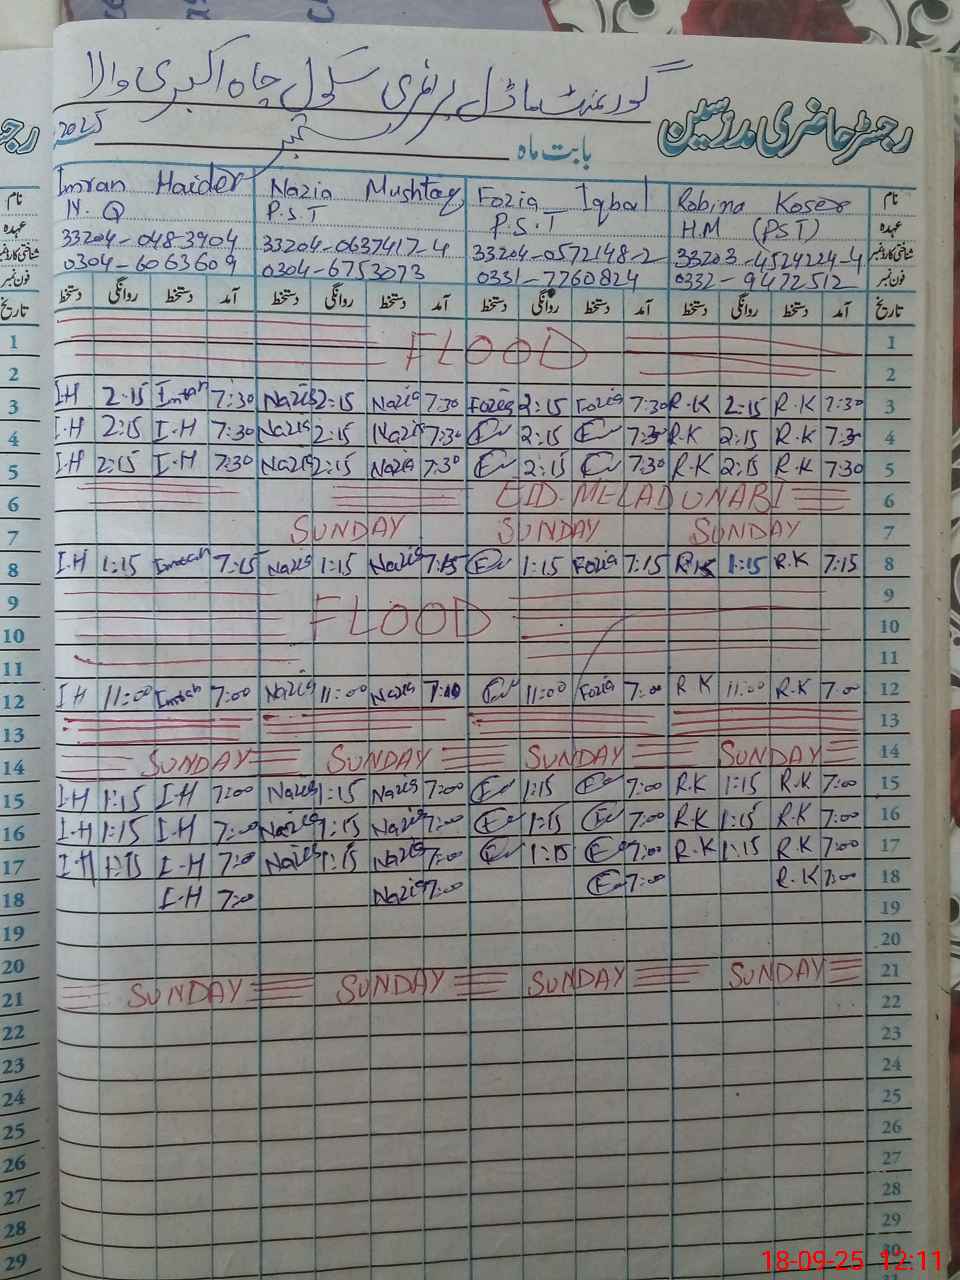 گورنمنٹ ماڈل پرائمری سکول چاہ اکبری والا
رجسٹر حاضری مدرسین
بابت ماہ ستمبر 2025
Imran Haider Nazia Mushtaq Fozia Iqbal Robina Koser نام
N.Q P.S.T P.S.T H.M (PST) عہدہ
33204-0483904 33204-0637417-4 33204-0572148-2 33203-4524224-4 شناختی کارڈ نمبر
0304-6063609 0304-6753073 0331-7760824 0332-9472512 فون نمبر
دستخط روانگی دستخط آمد دستخط روانگی دستخط آمد دستخط روانگی دستخط آمد دستخط روانگی دستخط آمد تاریخ
1 FLOOD 1
2 2
3 I.H 2:15 Imran 7:30 Nazia 2:15 Nazia 7:30 Fozia 2:15 Fozia 7:30 R.K 2:15 R.K 7:30 3
4 I.H 2:15 I.H 7:30 Nazia 2:15 Nazia 7:30 2:15 7:30 R.K 2:15 R.K 7:30 4
5 I.H 2:15 I.H 7:30 Nazia 2:15 Nazia 7:30 2:15 7:30 R.K 2:15 R.K 7:30 5
6 EID MELAD UNABI 6
7 SUNDAY SUNDAY SUNDAY 7
8 I.H 1:15 Imran 7:15 Nazia 1:15 Nazia 7:15 1:15 Fozia 7:15 R.K 1:15 R.K 7:15 8
9 9
10 FLOOD 10
11 11
12 I H 11:00 Imran 7:00 Nazia 11:00 Nazia 7:00 11:00 Fozia 7:00 R K 11:00 R.K 7:00 12
13 13
14 SUNDAY SUNDAY SUNDAY SUNDAY 14
15 I.H 1:15 I.H 7:00 Nazia 1:15 Nazia 7:00 1:15 7:00 R.K 1:15 R.K 7:00 15
16 I.H 1:15 I.H 7:00 Nazia 1:15 Nazia 7:00 1:15 7:00 R.K 1:15 R.K 7:00 16
17 I.H 1:15 I-H 7:00 Nazia 1:15 Nazia 7:00 1:15 7:00 R.K 1:15 R.K 7:00 17
18 I.H 7:00 Nazia 7:00 7:00 R.K 7:00 18
19 19
20 20
21 SUNDAY SUNDAY SUNDAY SUNDAY 21
22 22
23 23
24 24
25 25
26 26
27 27
28 28
29 29
30
18-09-25 12:11